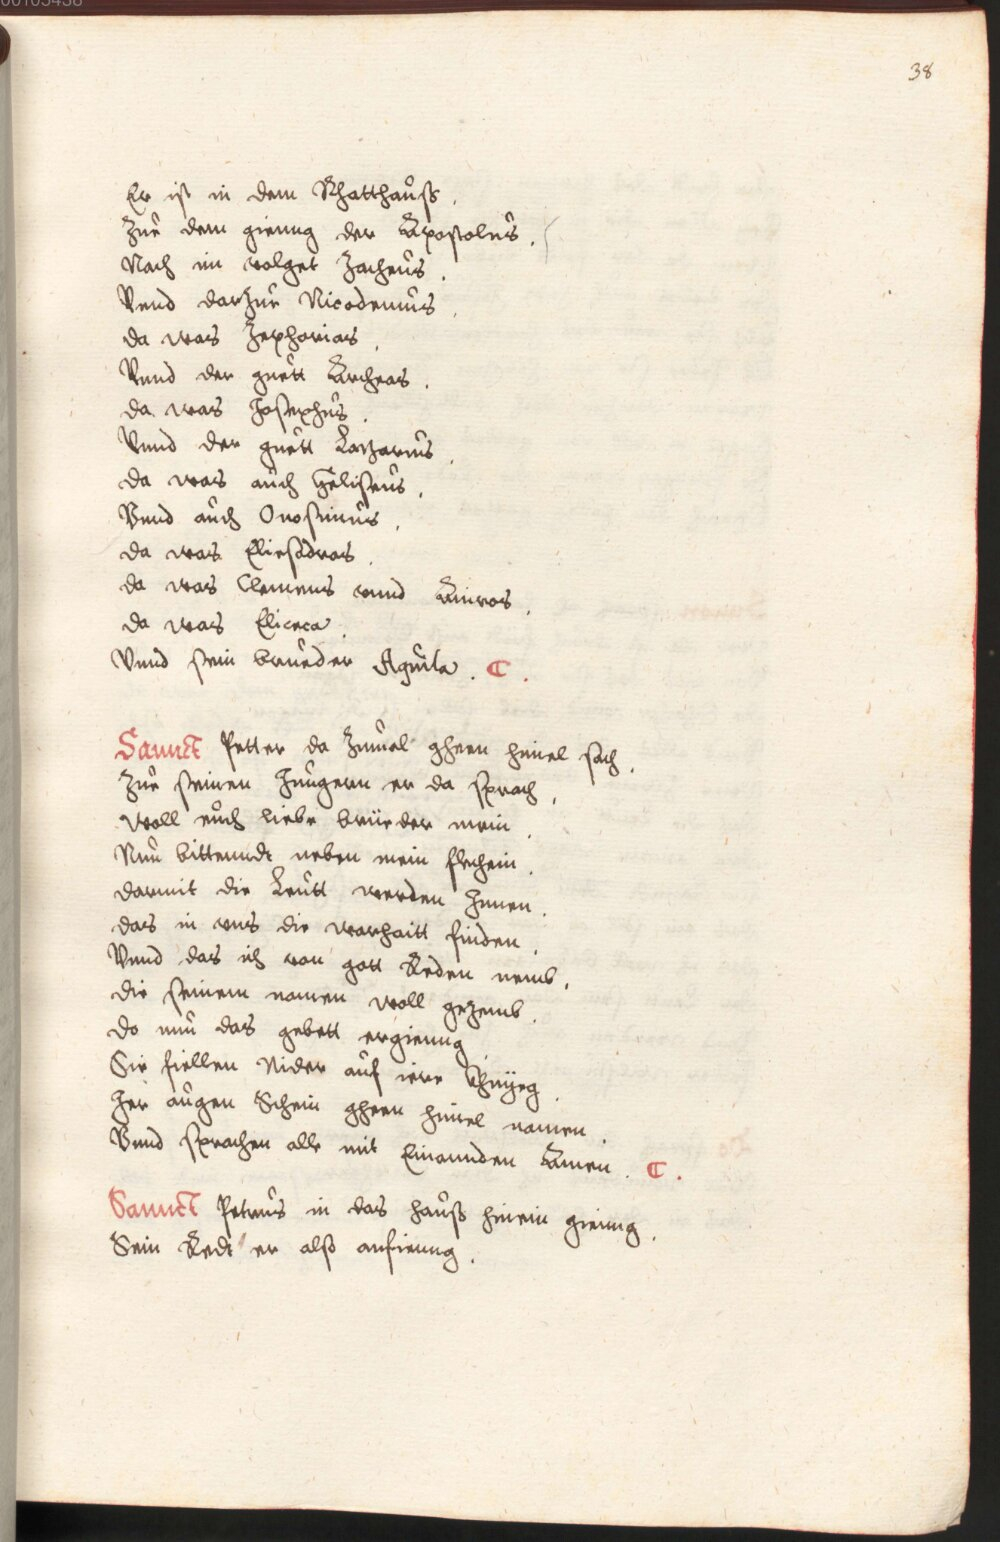 38
Er ist in dem Rhatthauß.
Zue dem gienng der Apostolus.
Nach im volget Zacheus.
Vnnd darzue Nicodemus.
da was Zephonias.
Vnnd der guett Archeas.
da was Josephus.
Vnnd der guett Lazarus.
da was auch Heliseus.
Vnnd auch Onosimus.
da was Eliesdras.
da was Clemens vnnd
da was Eliceca.
Vnnd sein brueder Aquila. C.
Sannct Petter da Zumal ghenn himel sach.
Zue seinen Jungern er da sprach.
Woll euch liebe brüeder mein.
Nun bittenndt neben mein flechein.
darmit die Leutt werden Jnnen.
das in vns die warhaitt finden.
Vnnd das ich von gott Reden nemb.
die seinem namen woll gezemb.
do nun das gebett ergienng
Sie fiellen Nider auf iere Khnyeg.
Jer augen Schein ghenn himel namen.
Vnnd sprachen alle mit Einannden Amen. C.
Sannct Petrus in das hauß hinein gienng.
Sein Redt er alß anfienng.